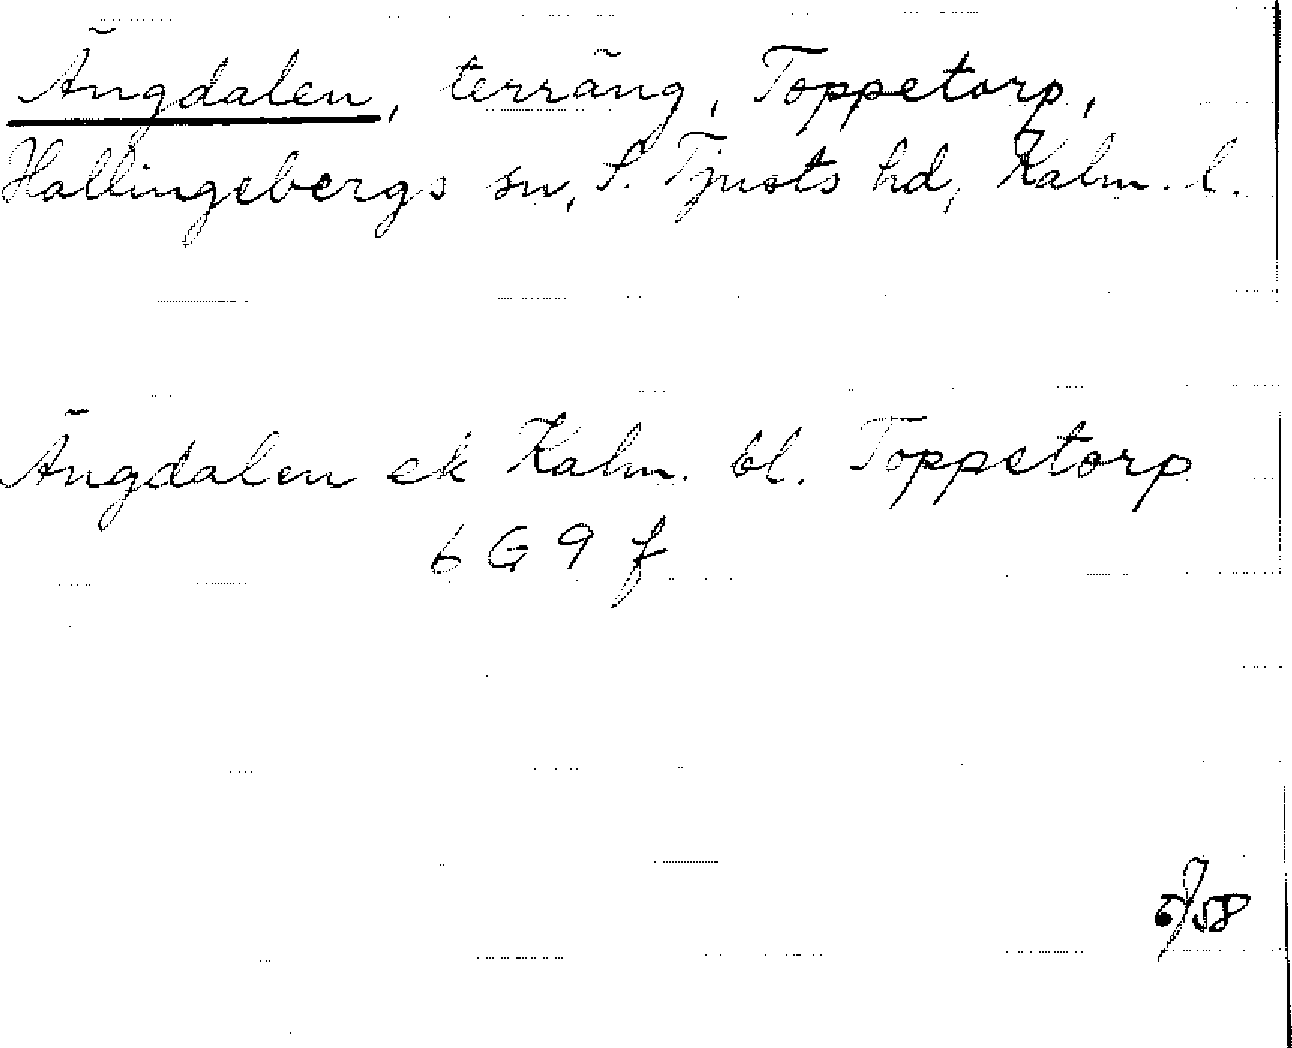 Ängdalen, terräng, Toppetorp,
Hallingebergs sn, S. Tjusts hd, Kalm. l.
Ängdalen ek Kalm. bl. Toppetorp
6 G 9 f